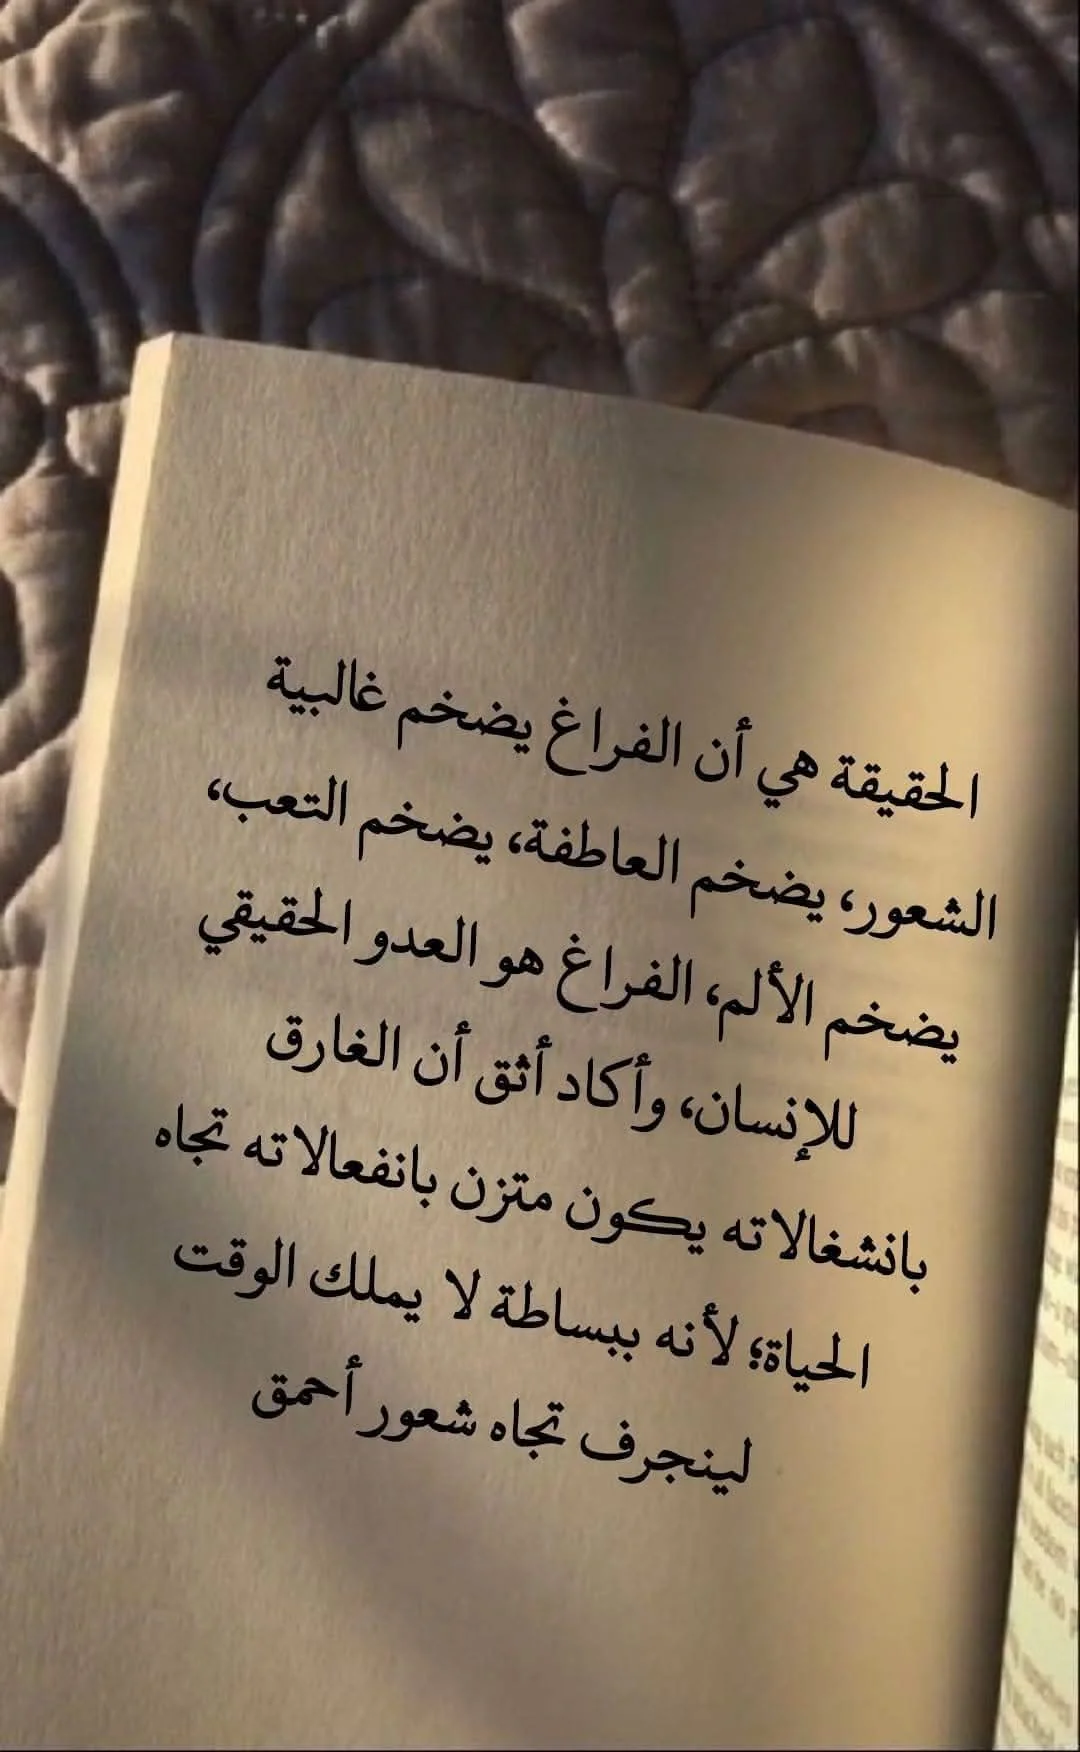 الحقيقة هي أن الفراغ يضخم غالبية
الشعور، يضخم العاطفة، يضخم التعب،
يضخم الألم، الفراغ هو العدو الحقيقي
للإنسان، وأكاد أثق أن الغارق
بانشغالاته يكون متزن بانفعالاته تجاه
الحياة؛ لأنه ببساطة لا يملك الوقت
لينجرف تجاه شعور أحمق